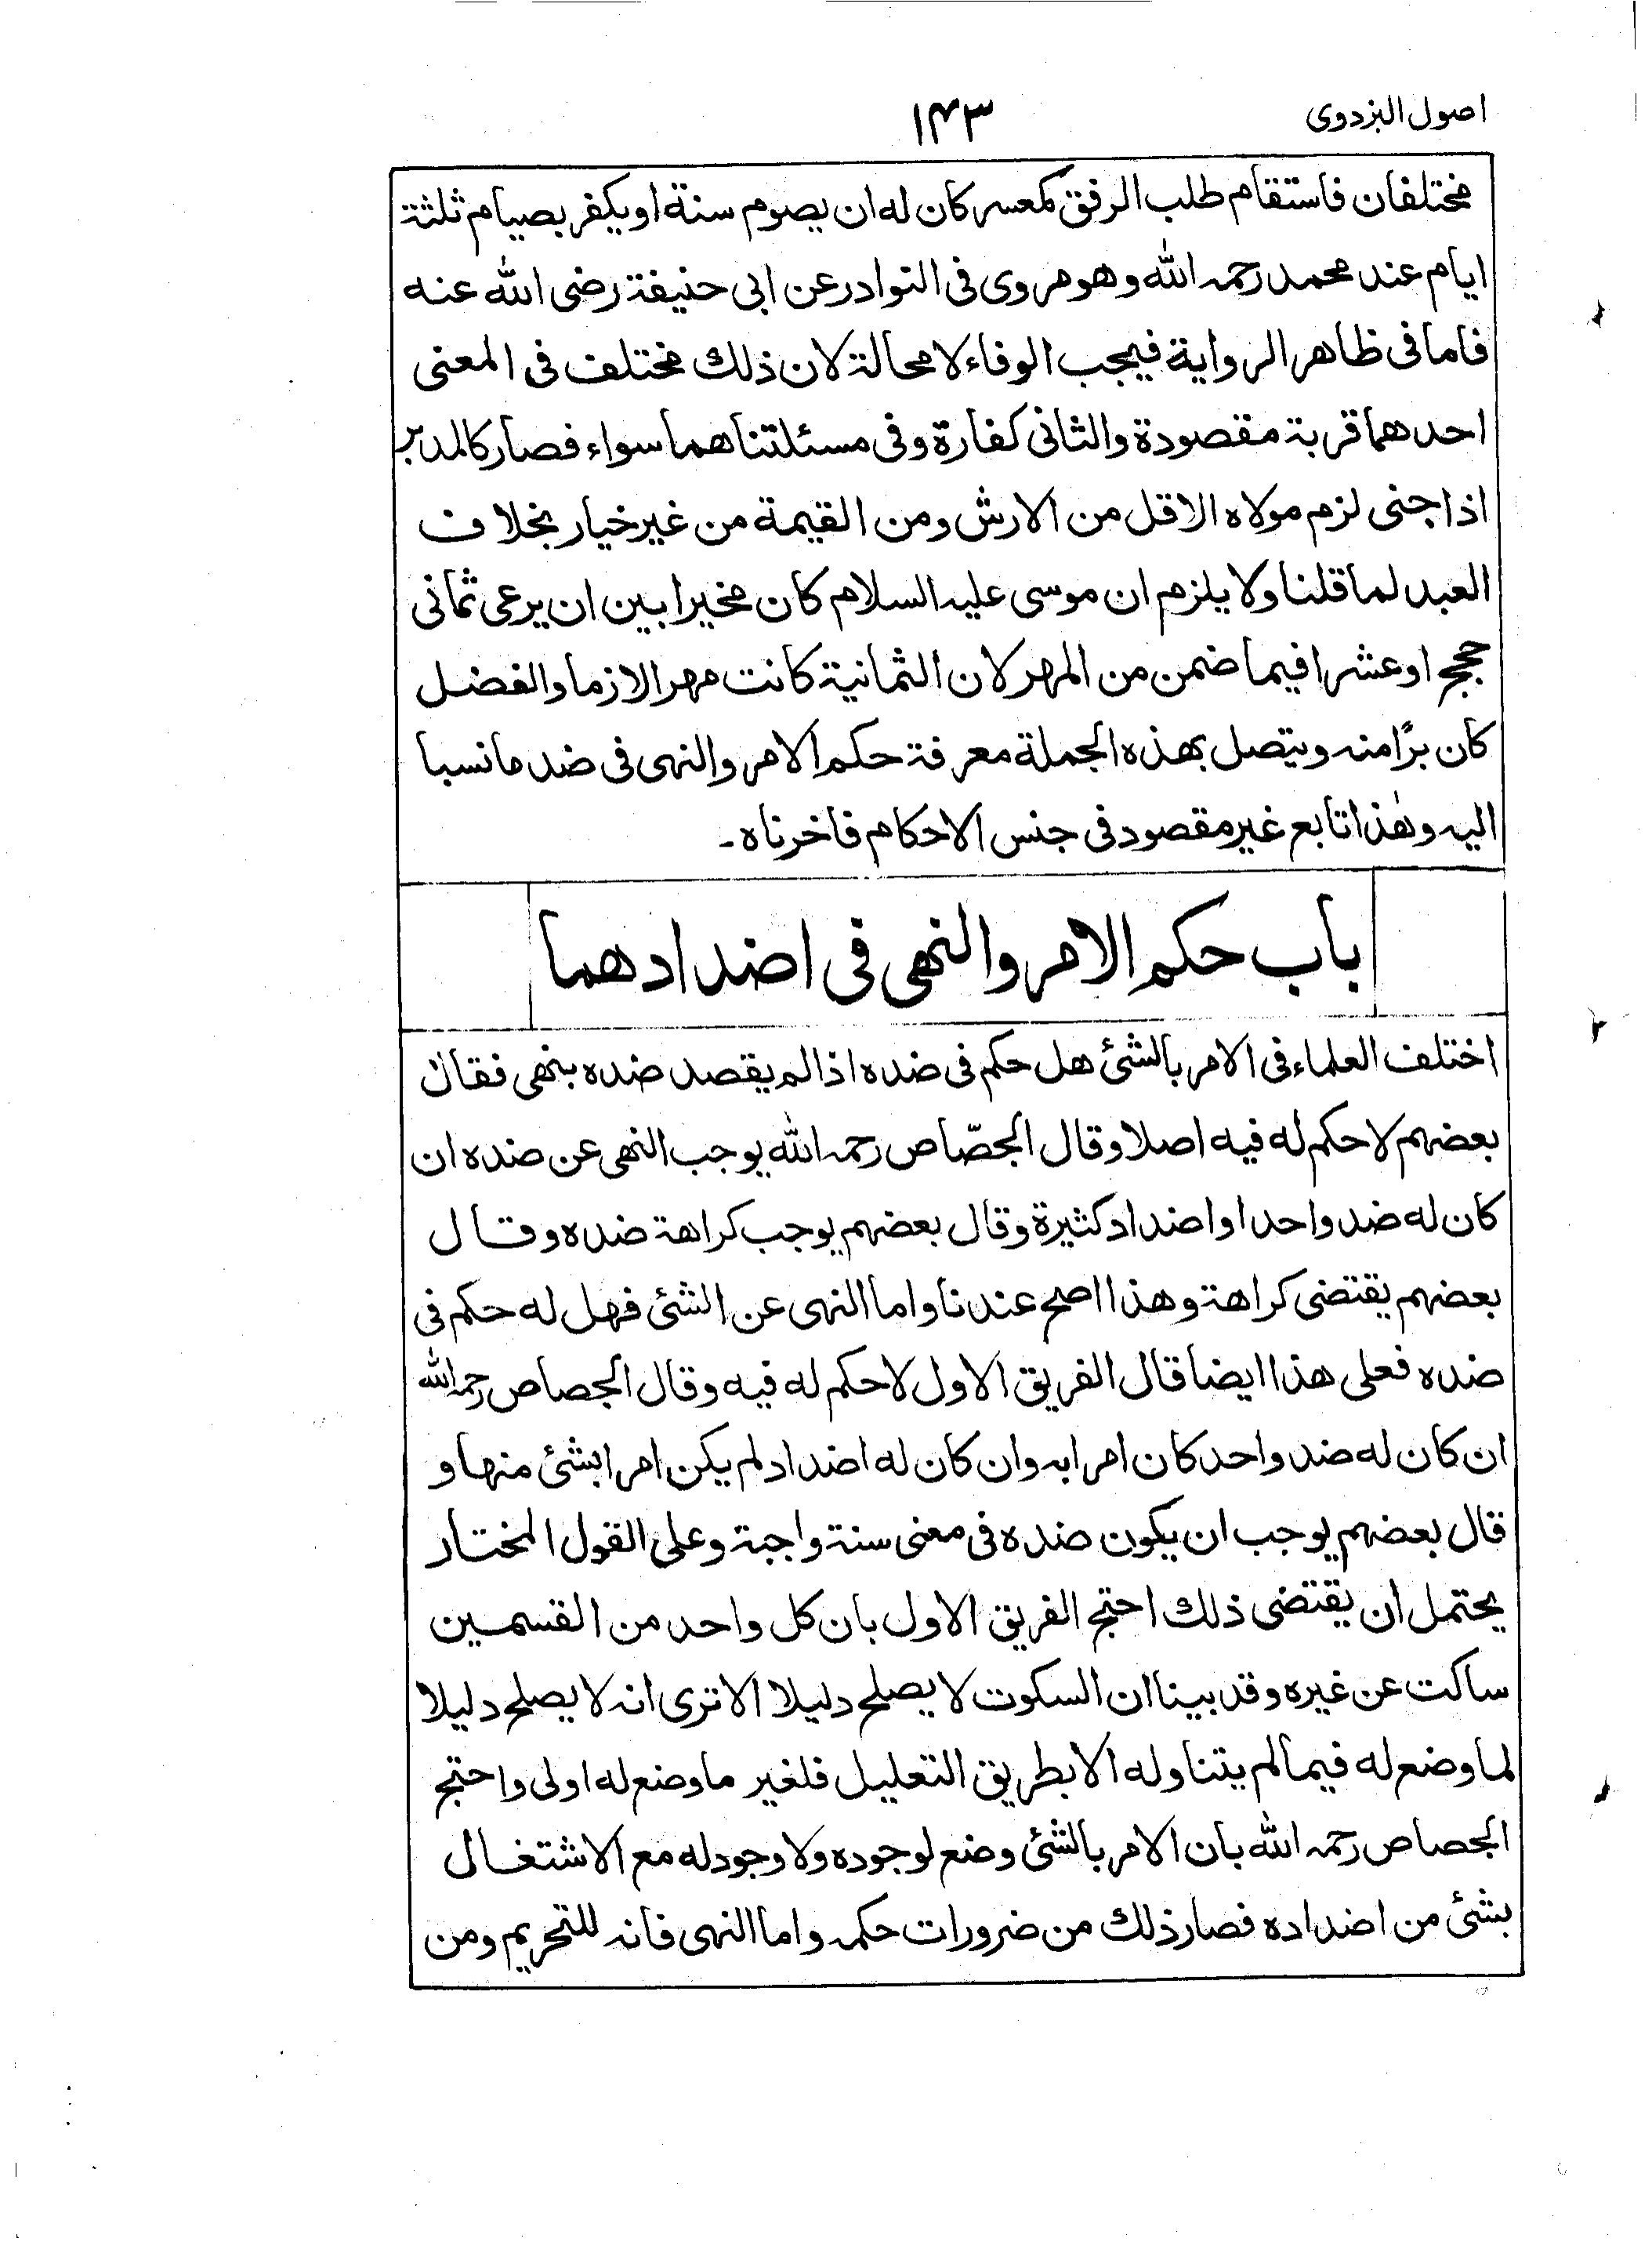 اصول البزدوی
۱۴۳
مختلفان فاستقام طلب الرفق کمعسر کان له ان یصوم سنة او یکفر بصیام ثلثة
ایام عند محمد رحمہ الله وهو مروی فی النوادر عن ابی حنیفة رضی الله عنه
فاما فی ظاهر الروایة فیجب الوفاء لا محالة لان ذلك مختلف فی المعنی
احدهما قربة مقصودة والثانی کفارة وفی مسئلتنا هما سواء فصار کالمدبر
اذا جنی لزم مولاه الاقل من الارش ومن القیمة من غیر خیار بخلاف
العبد لما قلنا ولا یلزم ان موسی علیہ السلام کان مخیرا بین ان یرعی ثمانی
حجج او عشرا فیما ضمن من المهر لان الثمانیة کانت مهرا لازما والفضل
کان برًا منہ ویتصل بهذه الجملة معرفة حکم الامر والنهی فی ضد ما نسبا
الیہ وهٰذا تابع غیر مقصود فی جنس الاحکام فاخرناه۔
باب حکم الامر والنهی فی اضدادهما
اختلف العلماء فی الامر بالشئ هل حکم فی ضده اذا لم یقصد ضده بنهی فقال
بعضهم لا حکم له فیه اصلا وقال الجصّاص رحمہ الله یوجب النهی عن ضده ان
کان له ضد واحد او اضداد کثیرة وقال بعضهم یوجب کراهة ضده وقال
بعضهم یقتضی کراهة وهذا اصح عندنا واما النهی عن الشئ فهل له حکم فی
ضده فعلی هذا ایضا قال الفریق الاول لا حکم له فیه وقال الجصاص رحمہ الله
ان کان له ضد واحد کان امرا به وان کان له اضداد لم یکن امرا بشئ منها و
قال بعضهم یوجب ان یکون ضده فی معنی سنة واجبة وعلی القول المختار
یحتمل ان یقتضی ذلك احتج الفریق الاول بان کل واحد من القسمین
ساکت عن غیره وقد بینا ان السکوت لا یصلح دلیلا الا تری انہ لا یصلح دلیلا
لما وضع له فیما لم یتناوله الا بطریق التعلیل فلغیر ما وضع له اولی واحتج
الجصاص رحمہ الله بان الامر بالشئ وضع لوجوده ولا وجود له مع الاشتغال
بشئ من اضداده فصار ذلك من ضرورات حکمہ واما النهی فانہ للتحریم ومن